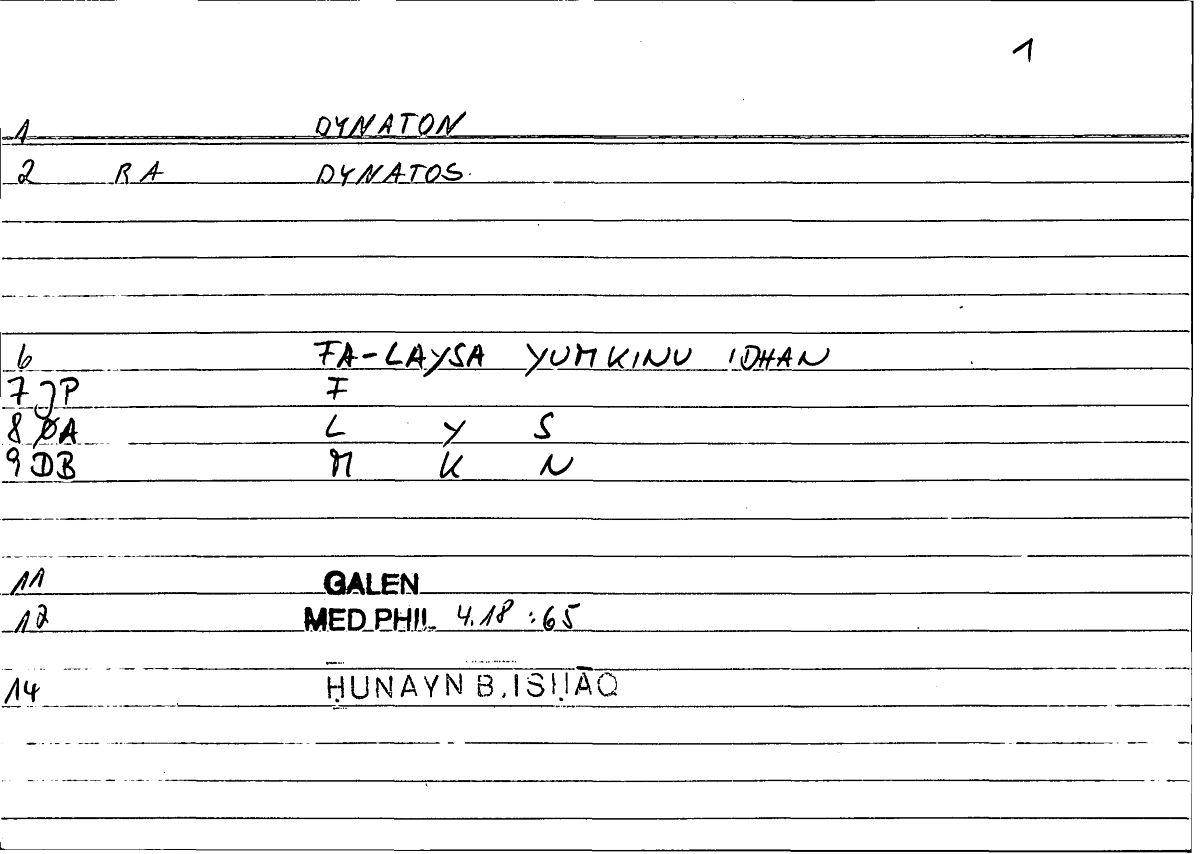 1
1 DYNATON
2 RA DYNATOS
6 FA-LAYSA YUMKINU 'IDHAN
7 JP F
8 ØA L Y S
9 DB M K N
11 GALEN
12 MED PHIL 4.18 :65
14 ḤUNAYN B. ISḤĀQ